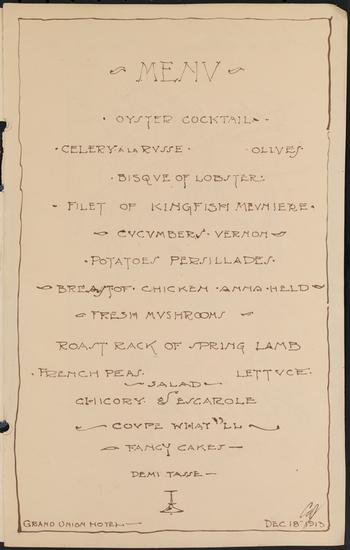 MENV
OYSTER COCKTAIL
CELERY A LA RVSSE · OLIVES
BISQVE OF LOBSTER
FILET OF KINGFISH MEVNIERE
CVCVMBERS · VERNON
POTATOES PERSILLADES
BREAST OF · CHICKEN · ANNA · HELD
FRESH MVSHROOMS
ROAST RACK OF SPRING LAMB
FRENCH PEAS. LETTVCE
SALAD
CHICORY & ESCAROLE
COVPE WHAT YOU'LL
FANCY CAKES
DEMI TASSE
GRAND UNION HOTEL DEC 18TH 1913